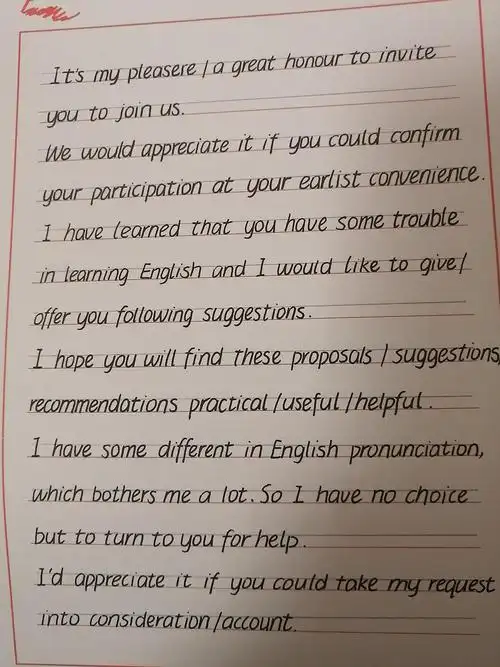 It's my pleasere / a great honour to invite
you to join us.
We would appreciate it if you could confirm
your participation at your earlist convenience.
I have learned that you have some trouble
in learning English and I would like to give/
offer you following suggestions.
I hope you will find these proposals / suggestions,
recommendations practical /useful /helpful.
I have some different in English pronunciation,
which bothers me a lot. So I have no choice
but to turn to you for help.
I'd appreciate it if you could take my request
into consideration/account.